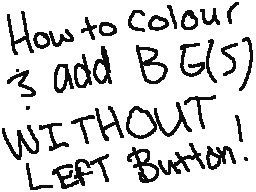 How to colour
& add BG(S)
WITHOUT
LEFT Button!